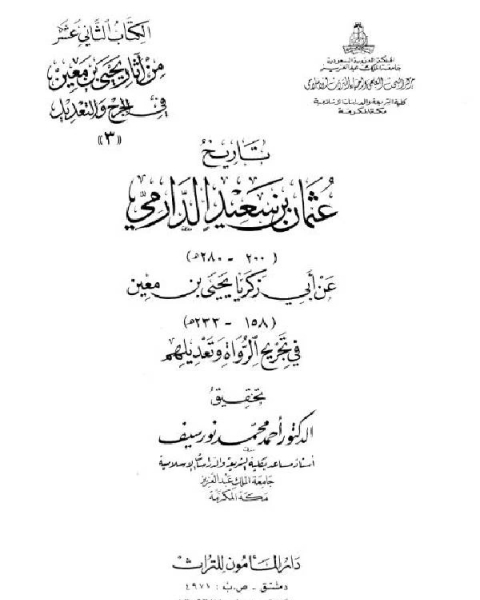 الكتاب الثاني عشر
من آثار يحيى بن معين
في الجرح والتعديل
«٣»
المملكة العربية السعودية
جامعة الملك عبد العزيز
مركز البحث العلمي وإحياء التراث الإسلامي
كلية الشريعة والدراسات الإسلامية
مكة المكرمة
تاريخ
عثمان بن سعيد الدارمي
(٢٠٠ - ٢٨٠هـ)
عن أبي زكريا يحيى بن معين
(١٥٨ - ٢٣٣هـ)
في تجريح الرواة وتعديلهم
تحقيق
الدكتور أحمد محمد نور سيف
أستاذ مساعد بكلية الشريعة والدراسات الإسلامية
جامعة الملك عبد العزيز
مكة المكرمة
دار المأمون للتراث
دمشق - ص.ب: ٤٩٧١